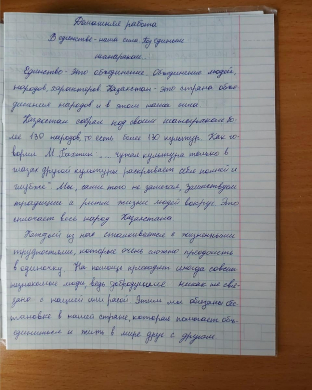 Домашняя работа
В единстве - наша сила под единым
шаныраком.
Единство - это объединение. Объединение людей,
народов, характеров. Казахстан - это страна объе-
динения народов и в этом наша сила.
Казахстан собрал под своим шаныраком бо
лее 130 народов, то есть более 130 культур. Как го-
ворил М. Бахтин: "... чужая культура только в
глазах другой культуры раскрывает себя полней и
глубже" Мы, сами того не замечая, заимствуем
традиции и ритм жизни людей вокруг. Это
сплочает весь народ Казахстана.
Каждый из нас сталкивается с жизненными
трудностями, которые очень сложно преодолеть
в одиночку. На помощь приходят иногда совсем
незнакомые люди, ведь добродушие никак не свя-
зано с нацией или расой. Этим мы обязаны об-
становке в нашей стране, которая помогает объ-
единиться и жить в мире друг с другом.